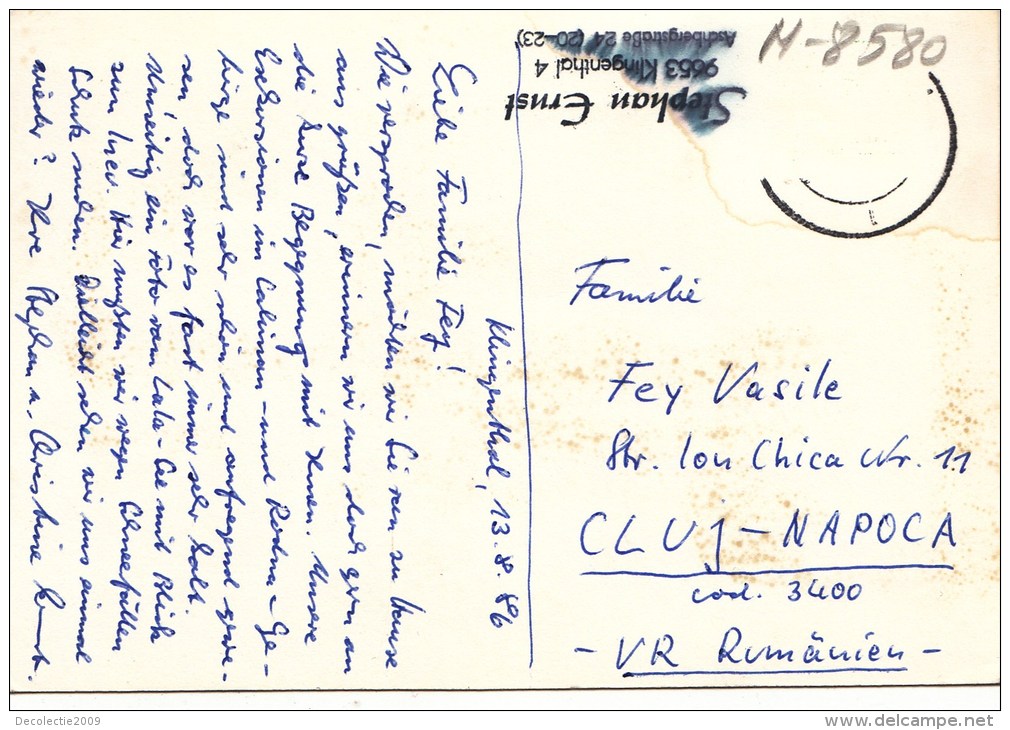 Klingenthal, 13.8.86
Liebe Familie Fey!
Wie versprochen, möchten wir Sie von zu Hause
aus grüßen, erinnern wir uns doch gern an
die kurze Begegnung mit Ihnen. Unsere
Exkursionen im Caliman- und Rodna-Ge-
birge sind sehr schön und aufregend gewe-
sen, doch war es fast immer sehr kalt.
Umseitig ein Foto vom Lala-See mit Blick
zum Ineu. Hier mußten wir wegen Schneefällen
Schutz suchen. Vielleicht sehen wir uns einmal
wieder? Ihre Stephan u. Christine Ernst.
Stephan Ernst
9653 Klingenthal 4
Aschbergstraße 24 (20–23)
H-8580
Familie
Fey Vasile
Str. Ion Chica Nr. 11
CLUJ-NAPOCA
cod. 3400
- VR Rumänien -
Decolectie2009
www.delcampe.net